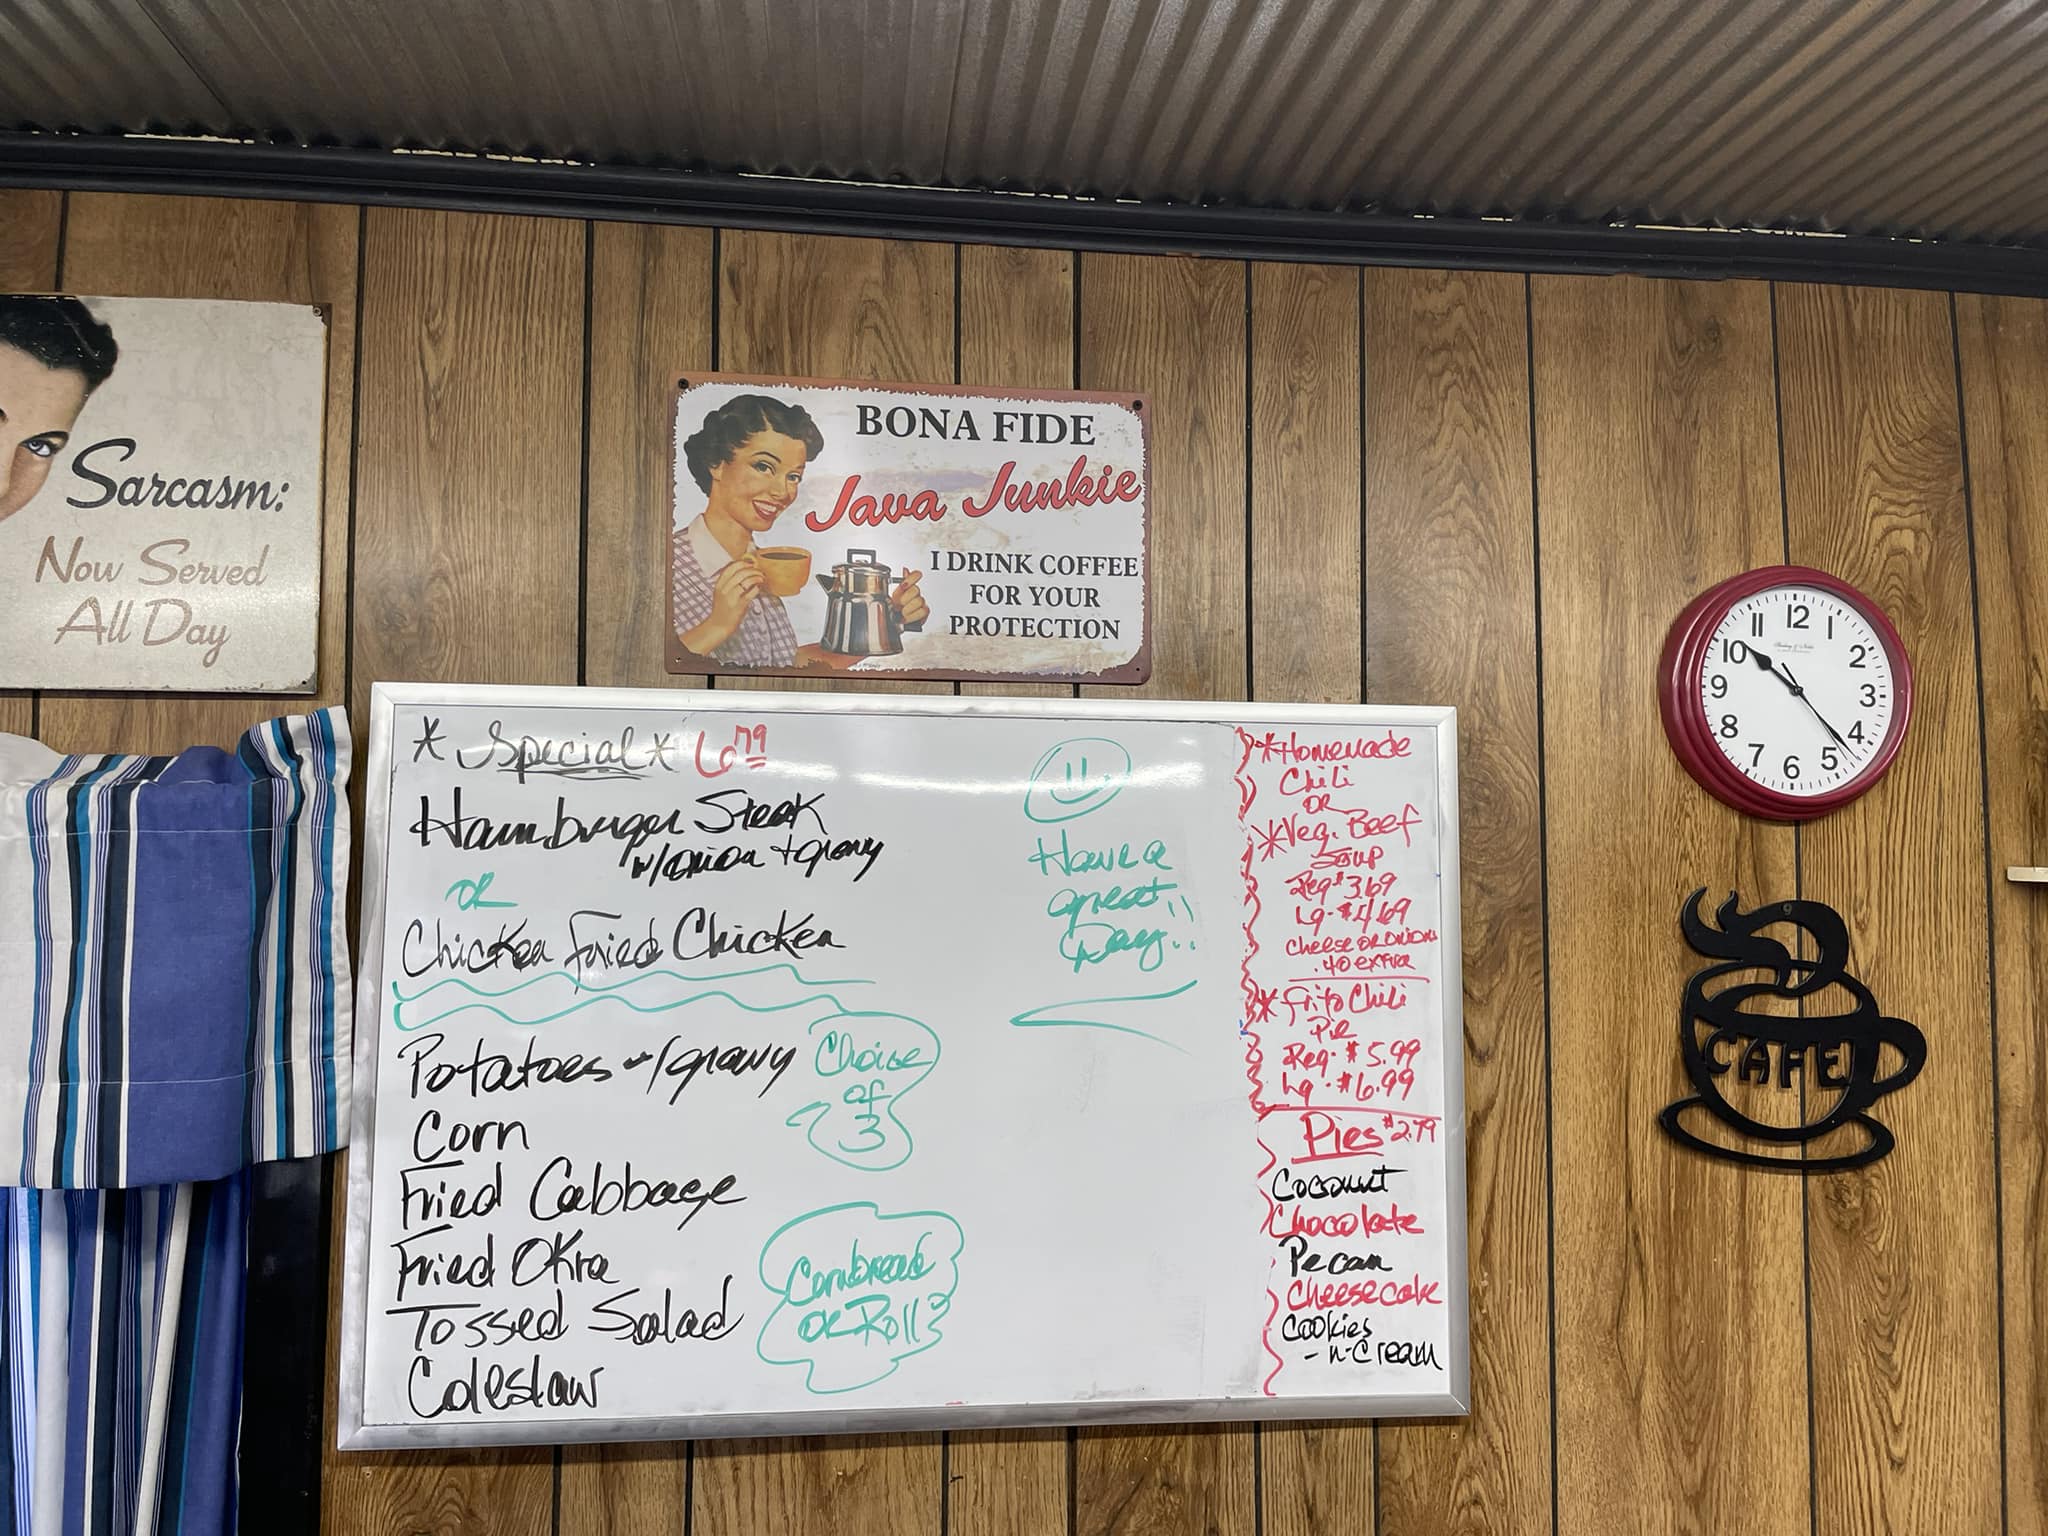 Sarcasm:
Now Served
All Day
BONA FIDE
Java Junkie
I DRINK COFFEE
FOR YOUR
PROTECTION
* Special * 6.79
Hamburger Steak
w/onion + gravy
OR
Chicken Fried Chicken
Potatoes w/gravy
Corn
Fried Cabbage
Fried Okra
Tossed Salad
Coleslaw
Choice
of
3
Cornbread
OR Roll?
Have a
great
Day!!
*Homemade
Chili
OR
*Veg. Beef
Soup
Reg $3.69
Lg. $4.69
Cheese OR onions
.40 extra
*Frito Chili
Pie
Reg. $5.99
Lg. $6.99
Pies $2.79
Coconut
Chocolate
Pecan
Cheesecake
Cookies
-n-Cream
12
1
2
3
4
5
6
7
8
9
10
11
CAFE